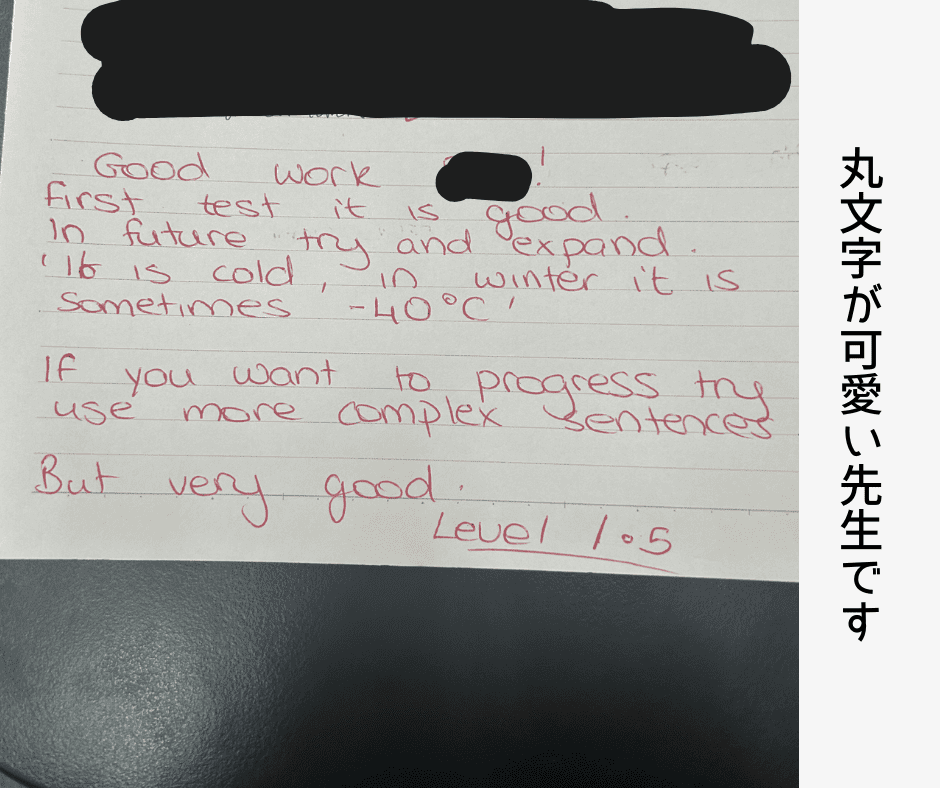 Good work !
First test it is good.
In future try and expand.
'It is cold, in winter it is
sometimes -40°C'
If you want to progress try
use more complex sentences
But very good.
Level 1.5
丸文字が可愛い先生です